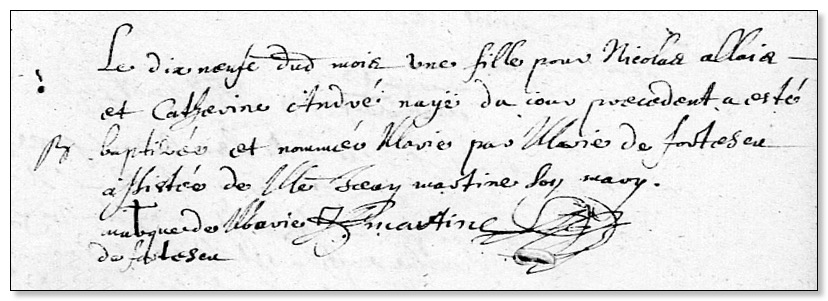 Le dix neufe dud mois une fille pour Nicolas allais
et Catherine André nayë du jour precedent a esté
B baptisée et nommée Marie par Marie de fortescu
assistée de Me Jean martine son mary.
marque de Marie J martine
de fortescu